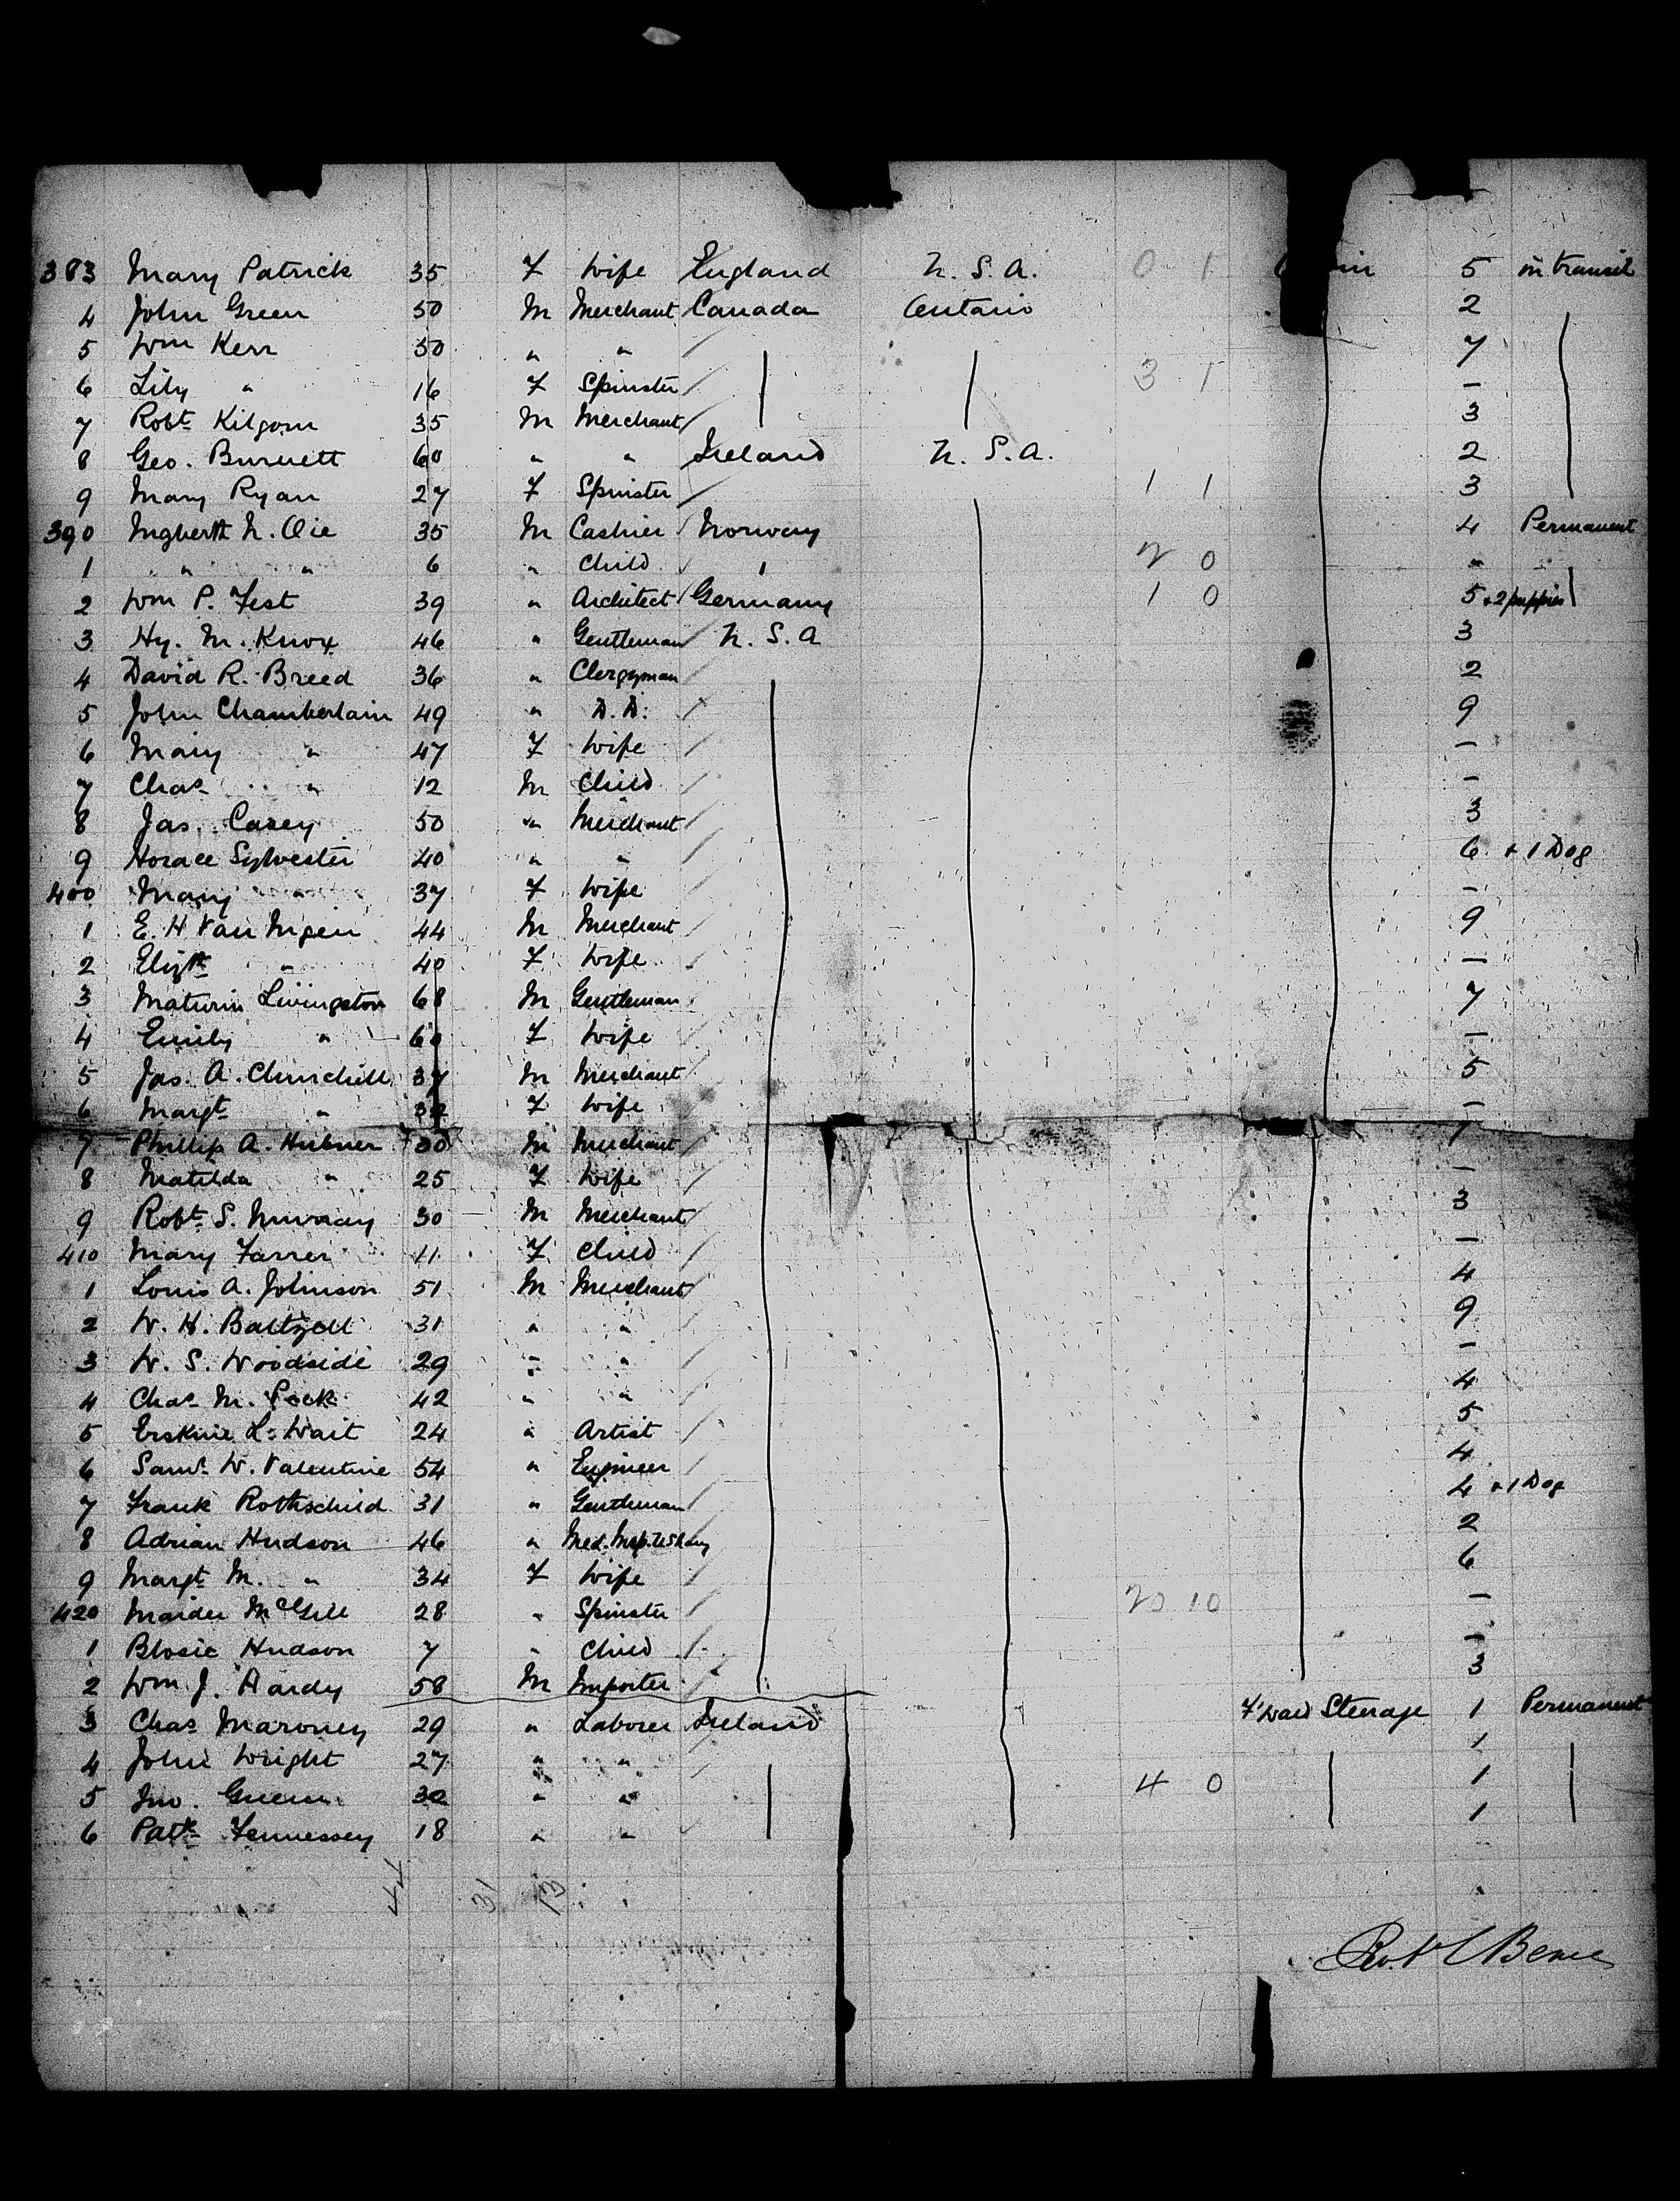 383 Mary Patrick 35 F Wife England U. S. A. 0 1 5 in transit
4 John Green 50 M Merchant Canada Ontario 2
5 Wm Kerr 50 " " 7
6 Lily " 16 F Spinster 3 1 —
7 Robt Kilgour 35 M Merchant 3
8 Geo. Burnett 60 " " Ireland U. S. A. 2
9 Mary Ryan 27 F Spinster 1 1 3
390 Ingberth N. Oie 35 M Cashier Norway 4 Permanent
1 " " 6 " Child 2 0 "
2 Wm P. Fest 39 " Architect Germany 1 0 5 + 2 puppies
3 Hy. M. Knox 46 " Gentleman U. S. A 3
4 David R. Breed 36 " Clergyman 2
5 John Chamberlain 49 " D. D. 9
6 Mary " 47 F Wife —
7 Chas " 12 M Child —
8 Jas. Casey 50 " Merchant 3
9 Horace Sylvester 40 " " 6 + 1 Dog
400 Mary " 37 F Wife —
1 E. H Van Ingen 44 M Merchant 9
2 Elizth " 40 F Wife —
3 Maturin Livingston 68 M Gentleman 7
4 Emily " 60 F Wife —
5 Jas. A. Churchill 37 M Merchant 5
6 Margt " 32 F Wife —
7 Phillip A. Hubner 30 M Merchant 1
8 Matilda " 25 F Wife —
9 Robt S. Murray 30 M Merchant 3
410 Mary Farrer 11 F Child —
1 Louis A. Johnson 51 M Merchant 4
2 W. H. Baltzell 31 " " 9
3 W. S. Woodside 29 " " —
4 Chas M. Pack 42 " " 4
5 Erskine L. Wait 24 " Artist 5
6 Saml W. Valentine 54 " Engineer 4
7 Frank Rothschild 31 " Gentleman 4 + 1 Dog
8 Adrian Hudson 46 " Med. Insp. 2
9 Margt M. " 34 F Wife 6
420 McGill 28 " Spinster 20 10 —
1 Hudson 7 " Child —
2 Wm. J. Hardy 58 M Importer 3
3 Chas Maroney 29 " Laborer Ireland F'ward Steerage 1 Permanent
4 John Wright 27 " " 1
5 Jno. 30 " " 4 0 1
6 Patk Fennessey 18 " " 1
44 31 13